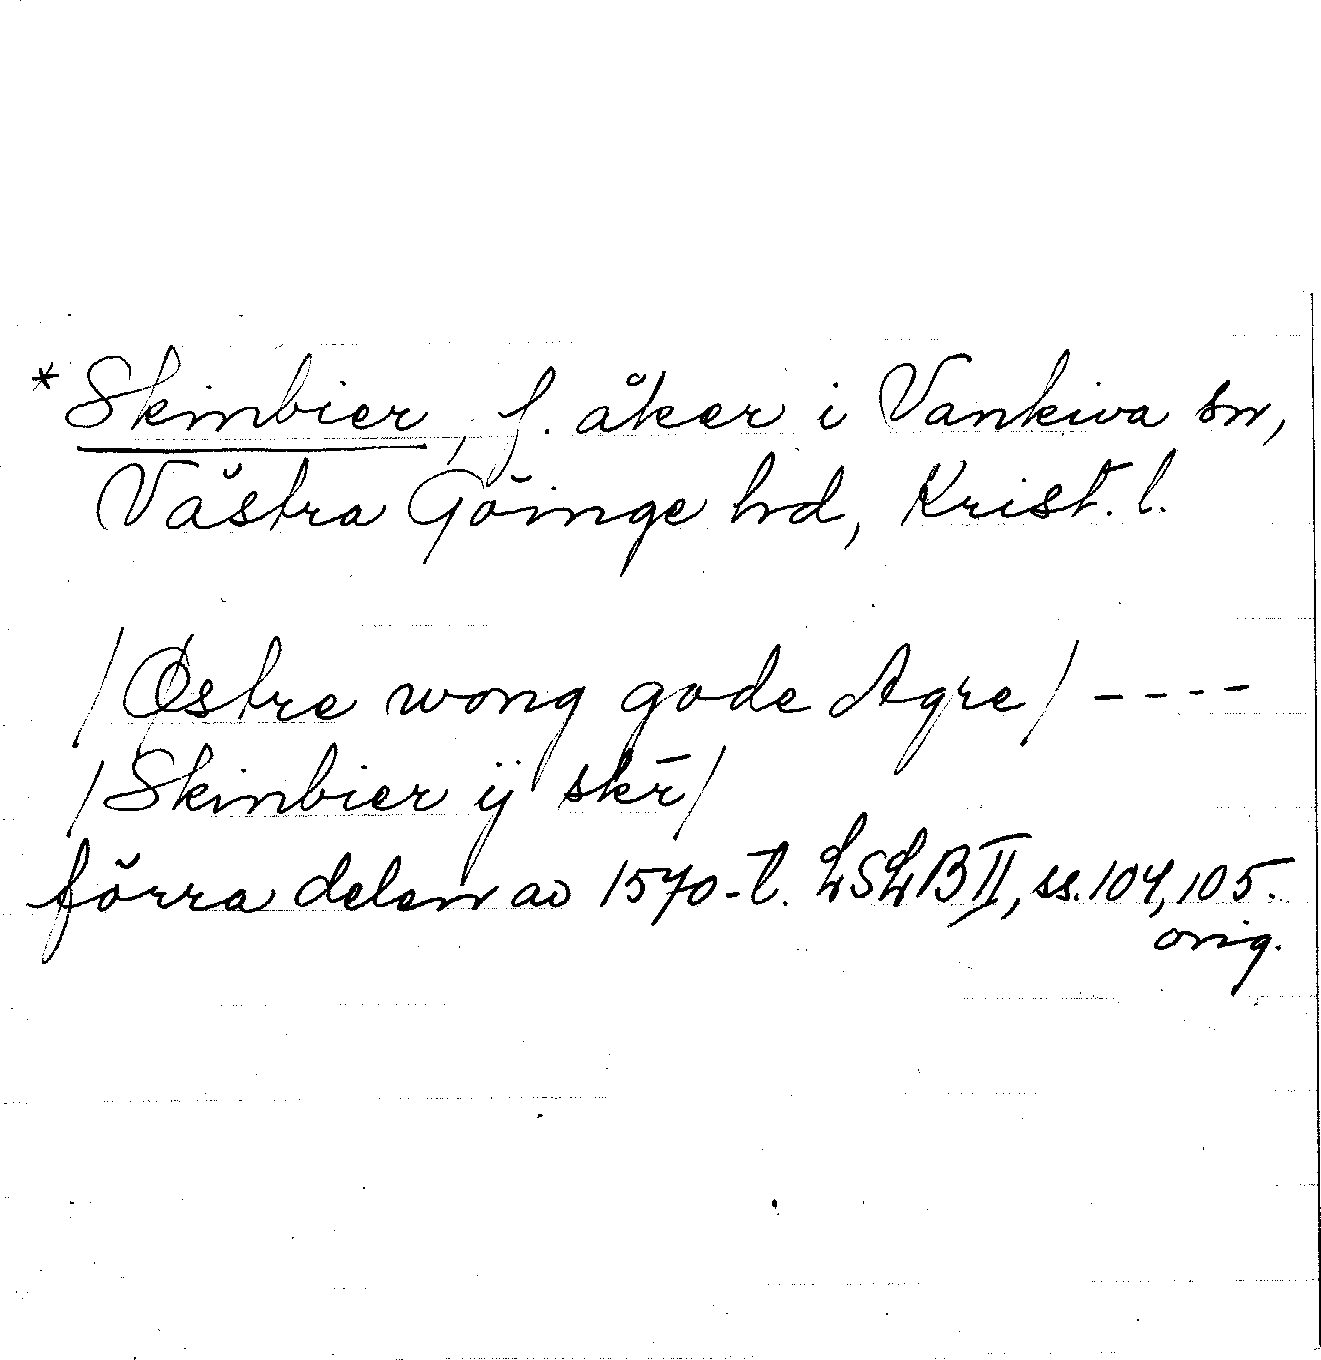 *Skinbier, f. åker i Vankiva sn,
Västra Göinge hd, Krist. l.
/Østre wong gode Agre/ ----
/Skinbier ij skr̄/
förra delen av 1570-t. LSLB II, ss. 104, 105.
orig.